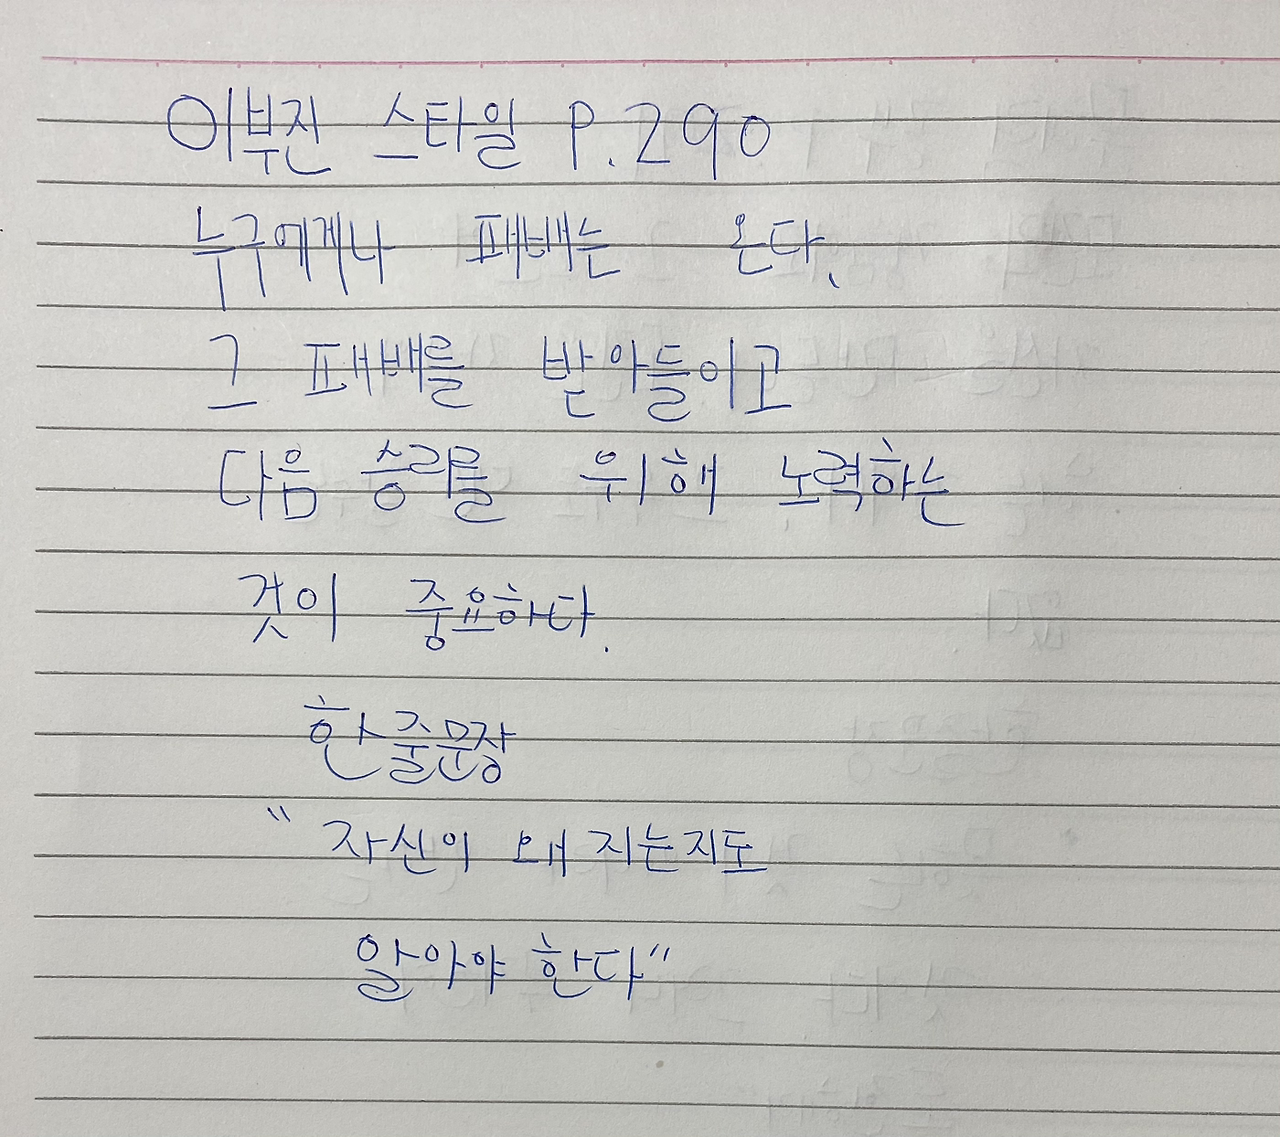 이부진 스타일 P.290
누구에게나 패배는 온다.
그 패배를 받아들이고
다음 승리를 위해 노력하는
것이 중요하다.
한줄문장
"자신이 왜 지는지도
알아야 한다"